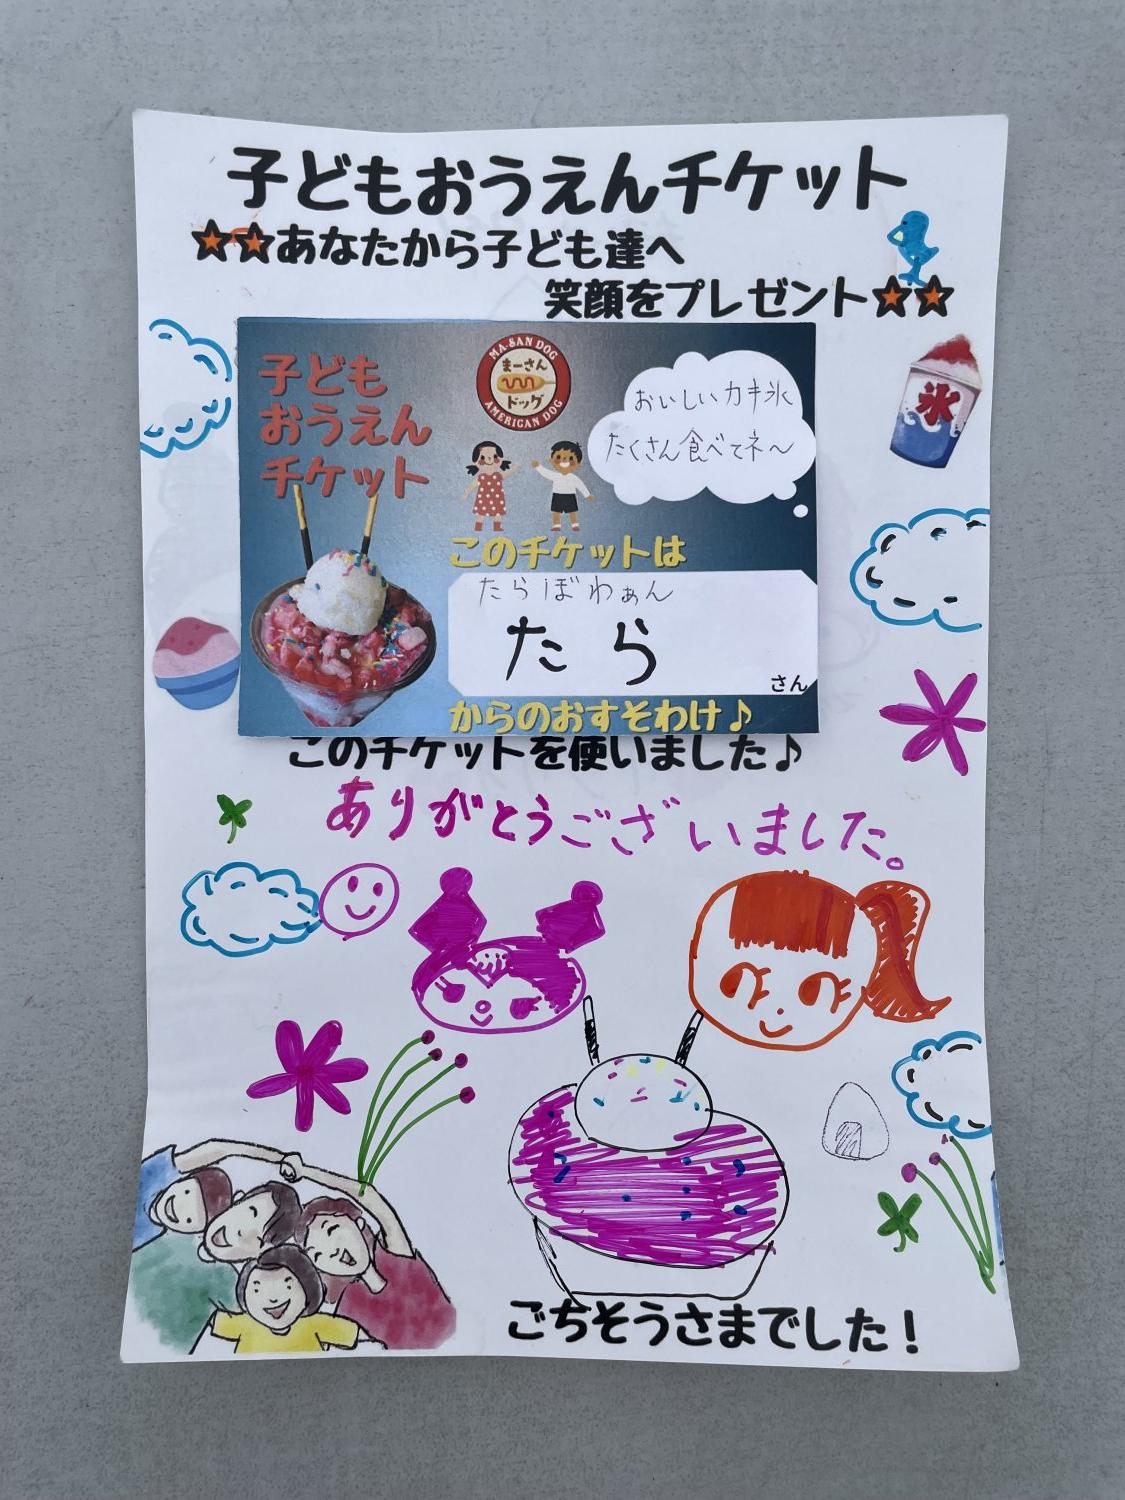 子どもおうえんチケット
☆☆あなたから子ども達へ
笑顔をプレゼント☆☆
子ども
おうえん
チケット
MA-SAN DOG
まーさん
ドッグ
AMERICAN DOG
おいしいカキ氷
たくさん食べてネ～
氷
このチケットは
たらぼわぁん
たら
さん
からのおすそわけ♪
このチケットを使いました♪
ありがとうございました。
ごちそうさまでした！